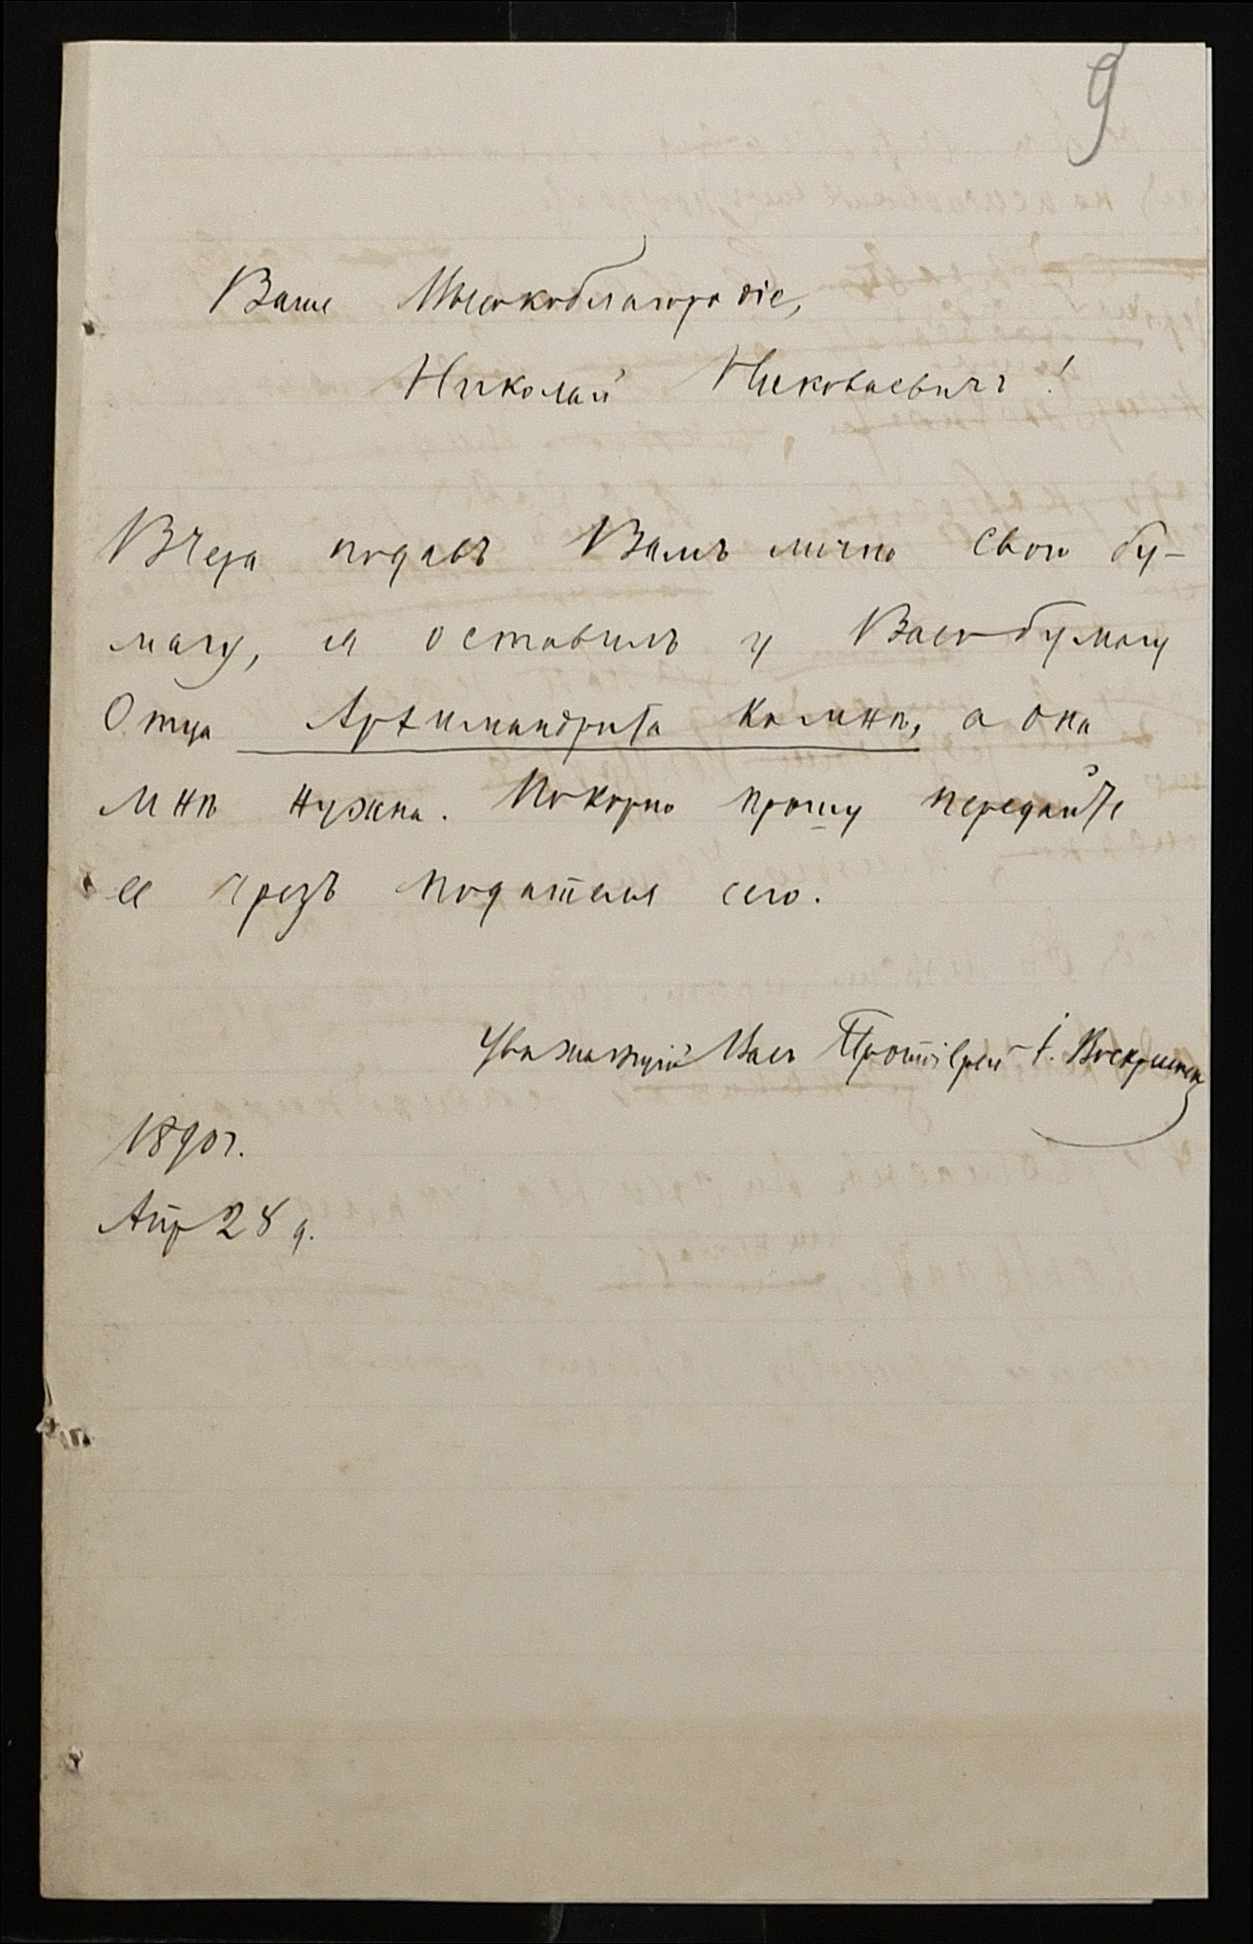 9
Ваше Высокоблагородіе,
Николай Николаевичъ!
Вчера подавъ Вамъ лично свою бу-
магу, я оставилъ у Васъ бумагу
Отца Архимандрита ко мнѣ, а она
мнѣ нужна. Покорно прошу передайте
ее чрезъ подателя сего.
Уважающій Васъ Протоіерей І.
1890 г.
Апр 28 д.